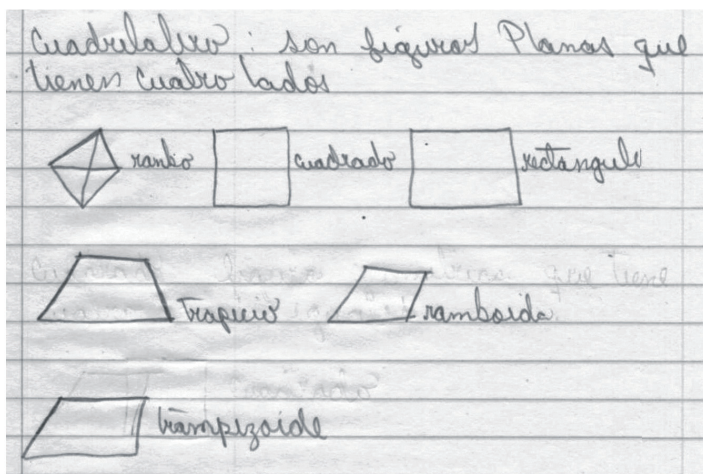 Cuadrilatero : son figuras Planas que
tienen cuatro lados
rombo cuadrado rectangulo
trapecio romboide
trampizoide